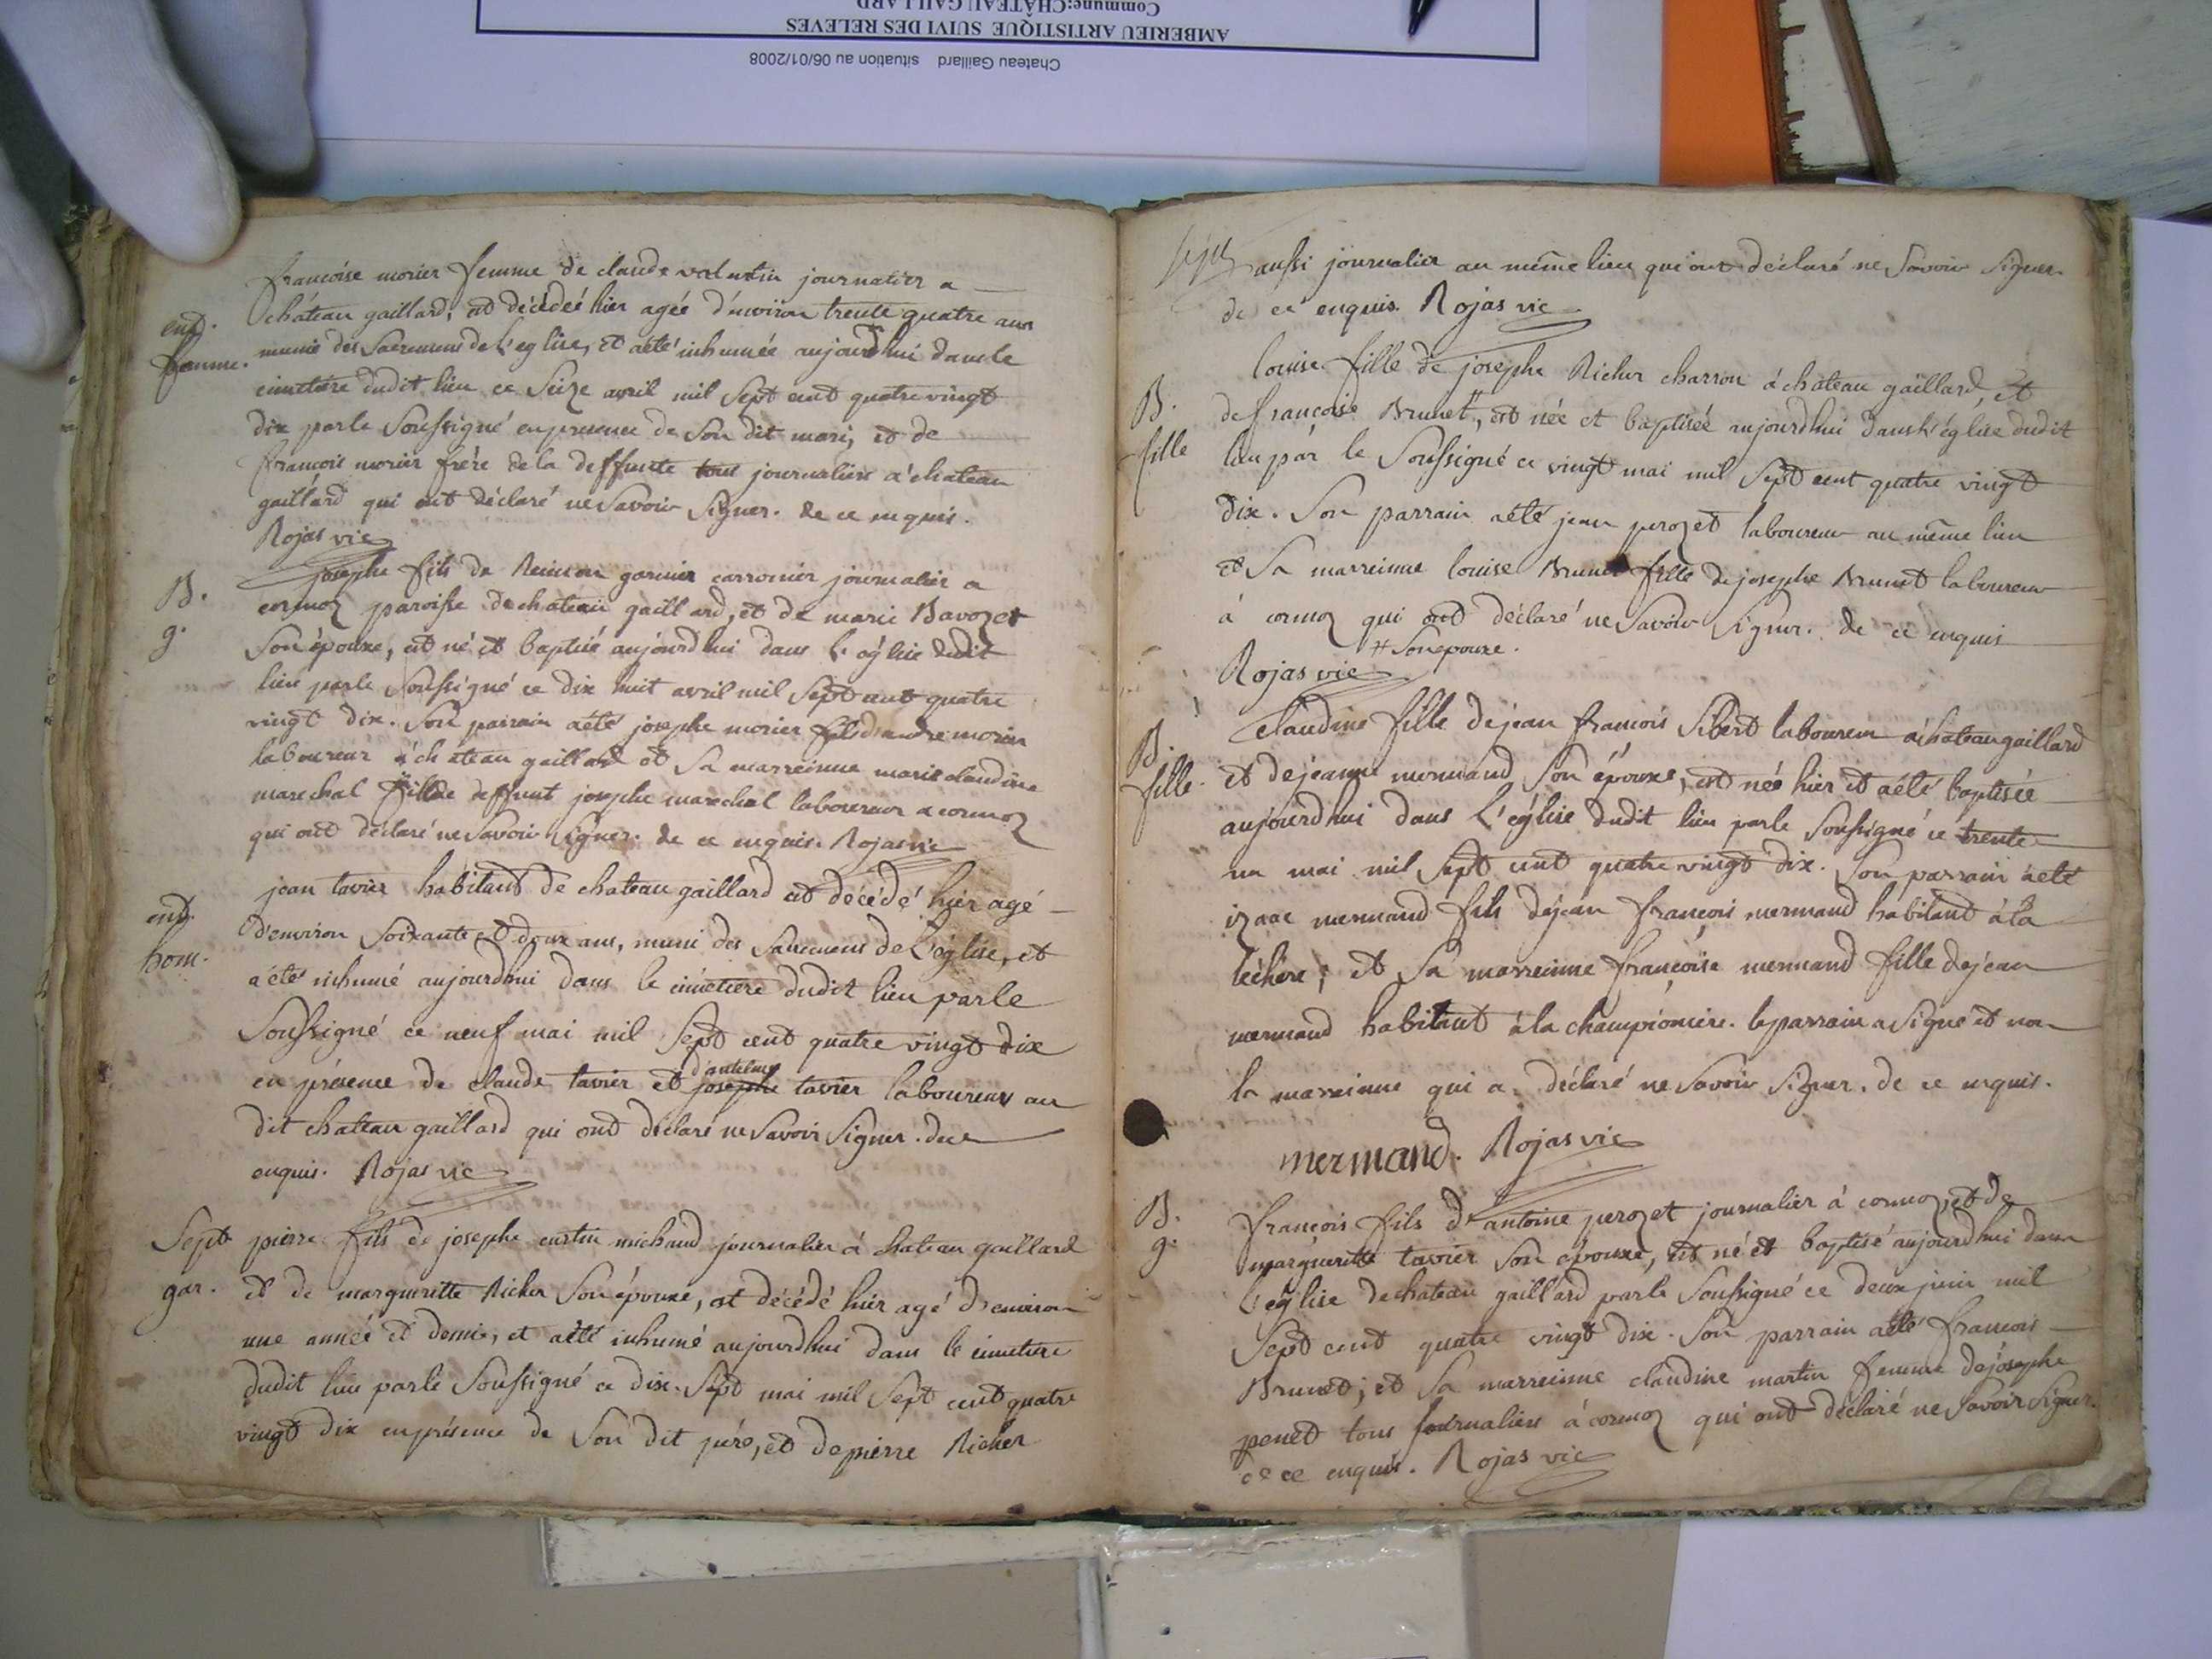 Commune:CHÂTEAU GAILLARD
AMBERIEU ARTISTIQUE SUIVI DES RELEVES
Chateau Gaillard situation au 06/01/2008
françoise morier femme de claude valentin journalier a
château gaillard, est décédeé hier agée d'environ trente quatre ans
ent.
femme.
munie des Sacremens de l'eglise, et aété inhumée aujourdhui dans le
cimetiére dudit lieu ce Seize avril mil Sept cent quatre vingt
dix parle Soussigné en presence de Son dit mari, et de
françois morier frére dela deffunte tous journaliers a chateau
gaillard qui ont déclaré ne Savoir Signer. de ce enquis.
Rojas vic
B.
g.
josephe fils de garnier journalier a
cormoz paroisse de chateau gaillard, et de marie Bavozet
Son épouse, est né et baptisé aujourdhui dans l'église dudit
lieu parle Soussigné ce dix huit avril mil Sept cent quatre
vingt dix. Son parrain aété josephe morier fils d'andre morier
laboureur à château gaillard et Sa marreinne marie claudine
marechal fille de deffunt josephe marechal laboureur a cormoz
qui ont déclaré ne Savoir Signer. de ce enquis. Rojas vic
ent.
hom.
jean tavier habitant de chateau gaillard est décédé hier agé
d'environ Soixante et douze ans, muni des Sacremens de l'église, et
a été inhumé aujourdhui dans le cimetiere dudit lieu parle
Soussigné ce neuf mai mil Sept cent quatre vingt dix
d'antelme
en présence de claude tavier et josephe tavier laboureurs au
dit chateau gaillard qui ont déclaré ne Savoir Signer. de ce
enquis. Rojas vic
Sept
gar.
pierre fils de josephe michaud journalier à chateau gaillard
et de marguerette Richer Son épouse, est décédé hier agé d'environ
une année et demie, et aété inhumé aujourdhui dans le cimetiere
dudit lieu parle Soussigné ce dix. Sept mai mil Sept cent quatre
vingt dix en présence de Son dit pére, et de pierre Richer
aussi journalier au même lieu qui ont déclaré ne Savoir Signer
de ce enquis. Rojas vic
B.
fille
louise fille de josephe Richer charron à château gaillard, et
de françoise Brunet #, est née et baptisée aujourdhui dans l'église dudit
lieu par le Soussigné ce vingt mai mil Sept cent quatre vingt
dix. Son parrain aété jean perozet laboureur au même lieu
et Sa marreinne louise Brunet fille de josephe Brunet laboureur
à cormoz qui ont déclaré ne Savoir Signer. de ce enquis
# Son épouse.
Rojas vic
B.
fille.
Claudine fille de jean françois Sibert laboureur à chateau gaillard
et de jeanne mermand Son épouse, est née hier et aété baptisée
aujourdhui dans l'église dudit lieu parle Soussigné ce trente
un mai mil Sept cent quatre vingt dix. Son parrain aété
izaac mermand fils de jean françois mermand habitant à la
léchere; et Sa marreinne françoise mermand fille de jean
mermand habitant à la championiere. le parrain a Signé et non
la marreinne qui a déclaré ne Savoir Signer. de ce enquis.
mermand. Rojas vic
B.
g.
françois fils d'antoine perozet journalier à cormoz, et de
marguerite tavier Son épouse, est né et baptisé aujourdhui dans
l'église de chateau gaillard parle Soussigné ce deux juin mil
Sept cent quatre vingt dix. Son parrain aété françois
Brunet; et Sa marreinne claudine martin femme de josephe
penet tous journaliers à cormoz qui ont déclaré ne Savoir Signer.
de ce enquis. Rojas vic